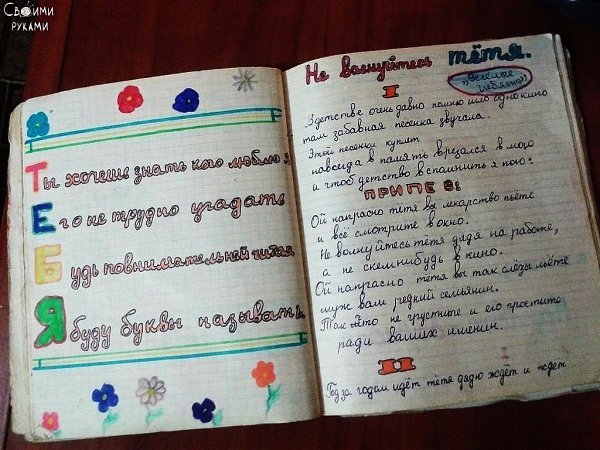 Своими
руками
Ты хочешь знать кого люблю я
Его не трудно угадать
Будь повнимательней читая
Я буду буквы называть
Не волнуйтесь тётя.
"Весёлые
ребята"
I
В детстве очень давно помню шло одно кино
там забавная песенка звучала.
Этой песенки куплет
навсегда в память врезался в мою
и чтоб детство вспомнить я пою:
ПРИПЕВ:
Ой напрасно тётя вы лекарство пьёте
и всё смотрите в окно.
Не волнуйтесь тётя дядя на работе,
а не с кем нибудь в кино.
Ой напрасно тётя вы так слёзы льёте
муж ваш редкий семьянин.
Так что не грустите и его простите
ради ваших именин.
II
Год за годом идёт тётя дядю ждёт и ждёт